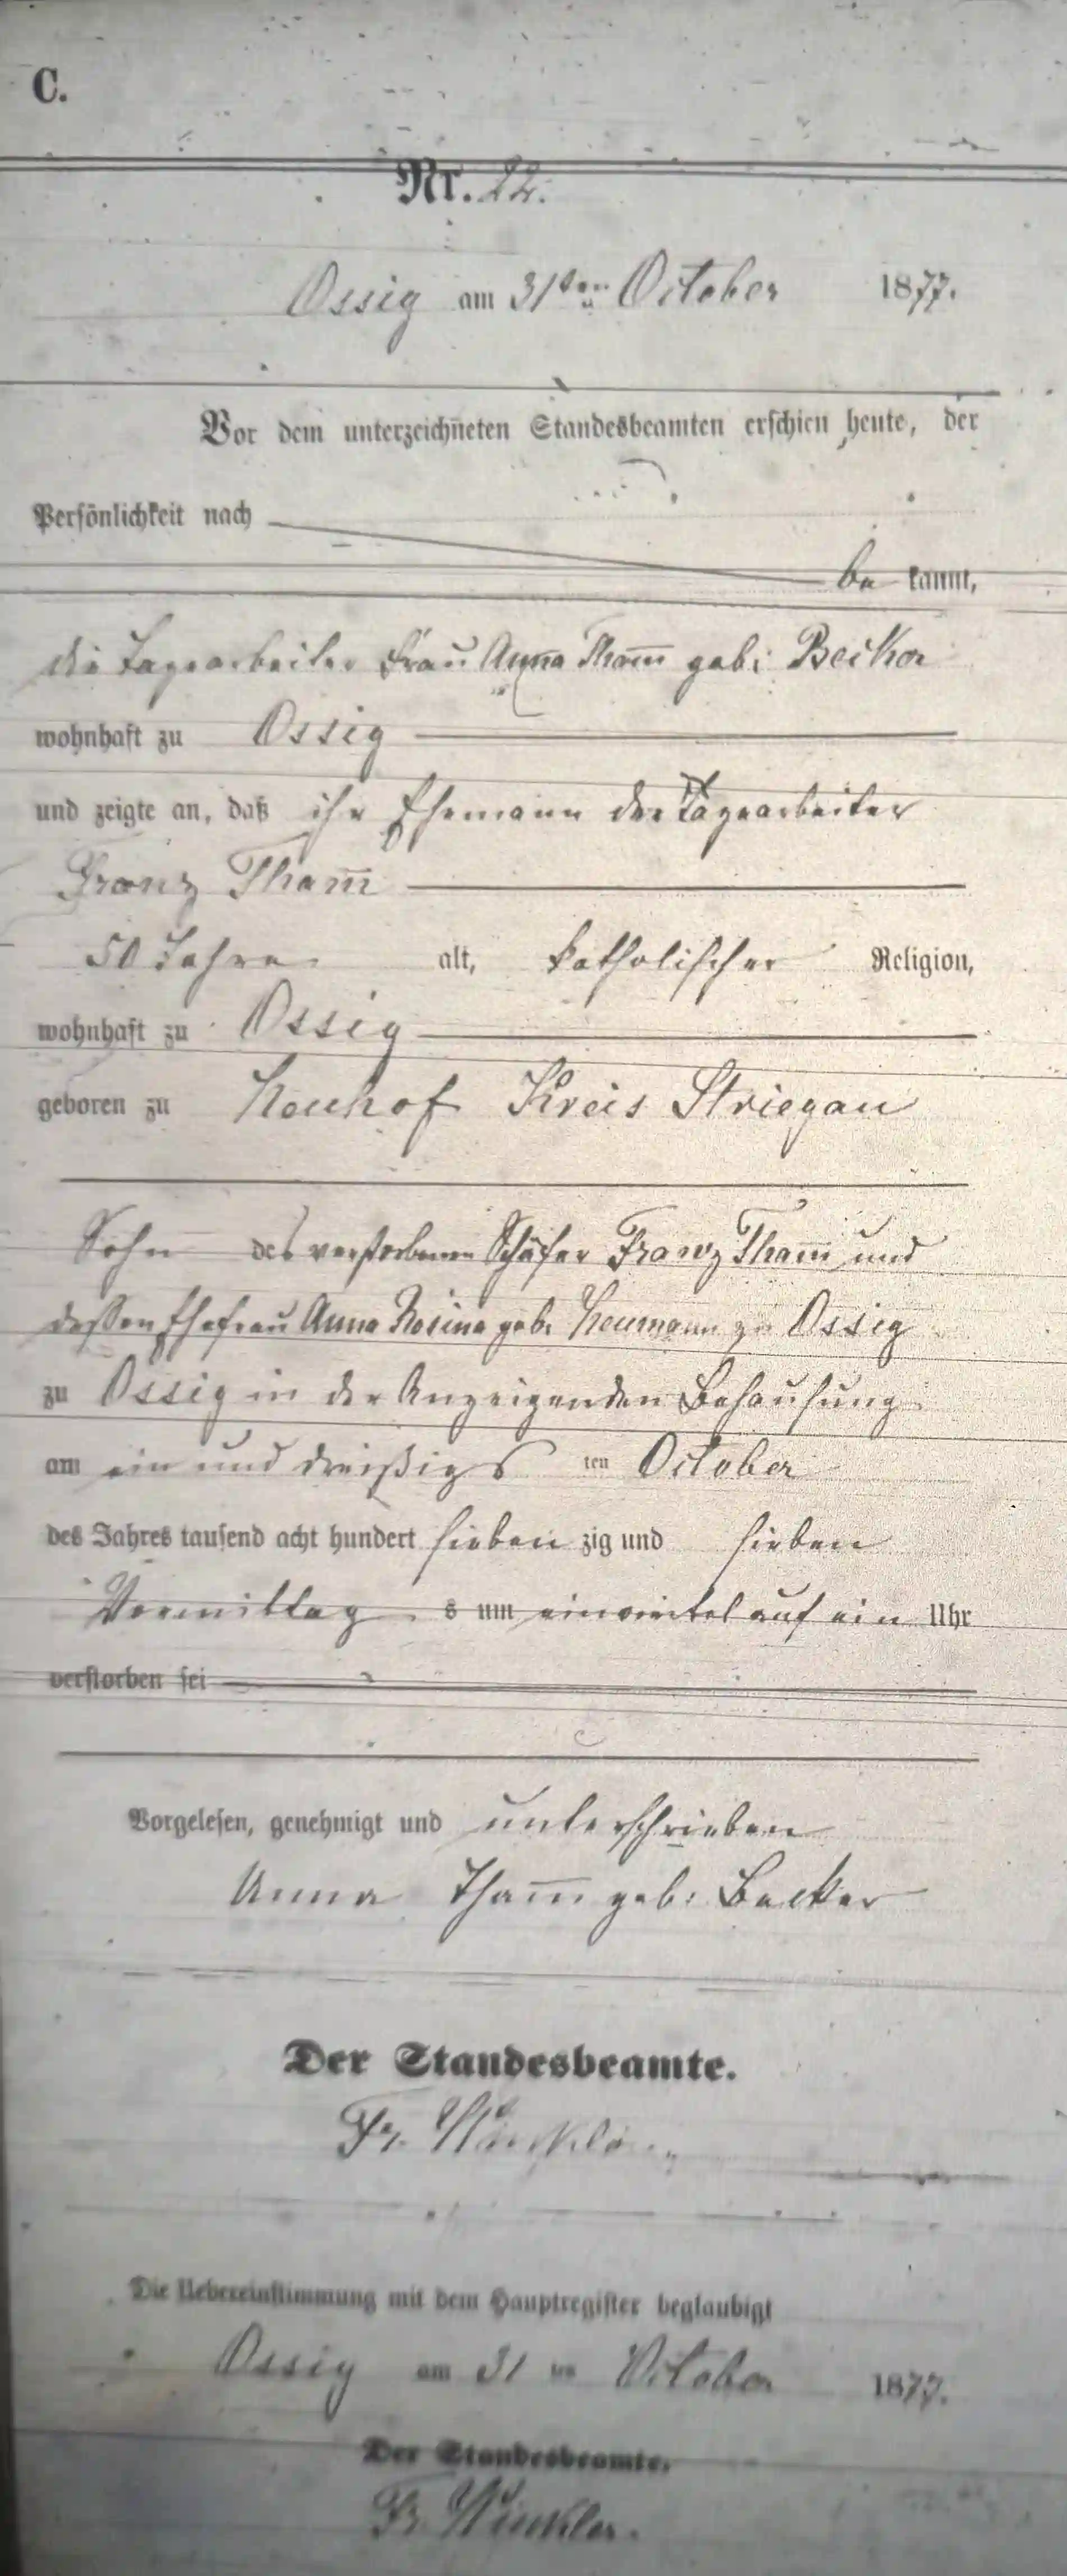 C.
Nr. 22.
Ossig am 31ten October 1877.
Vor dem unterzeichneten Standesbeamten erschien heute, der
Persönlichkeit nach
be kannt,
die Tagearbeiter Frau Anna Tham̅ geb: Becker
wohnhaft zu Ossig
und zeigte an, daß ihr Ehemann der Tagearbeiter
Franz Tham̅
50 Jahre alt, katholischer Religion,
wohnhaft zu Ossig
geboren zu Neuhof Kreis Striegau
Sohn des verstorbenen Schäfer Franz Tham̅ und
dessen Ehefrau Anna Rosina geb. Neumann zu Ossig
zu Ossig in der Anzeigenden Behausung
am ein und dreißigs ten October
des Jahres tausend acht hundert sieben zig und sieben
Vormittag s um einviertel auf ein Uhr
verstorben sei
Vorgelesen, genehmigt und unterschrieben
Anna Tham̅ geb: Becker
Der Standesbeamte.
Fr. Winkler
Die Uebereinstimmung mit dem Hauptregister beglaubigt
Ossig am 31 ten October 1877.
Der Standesbeamte.
Fr. Winkler.